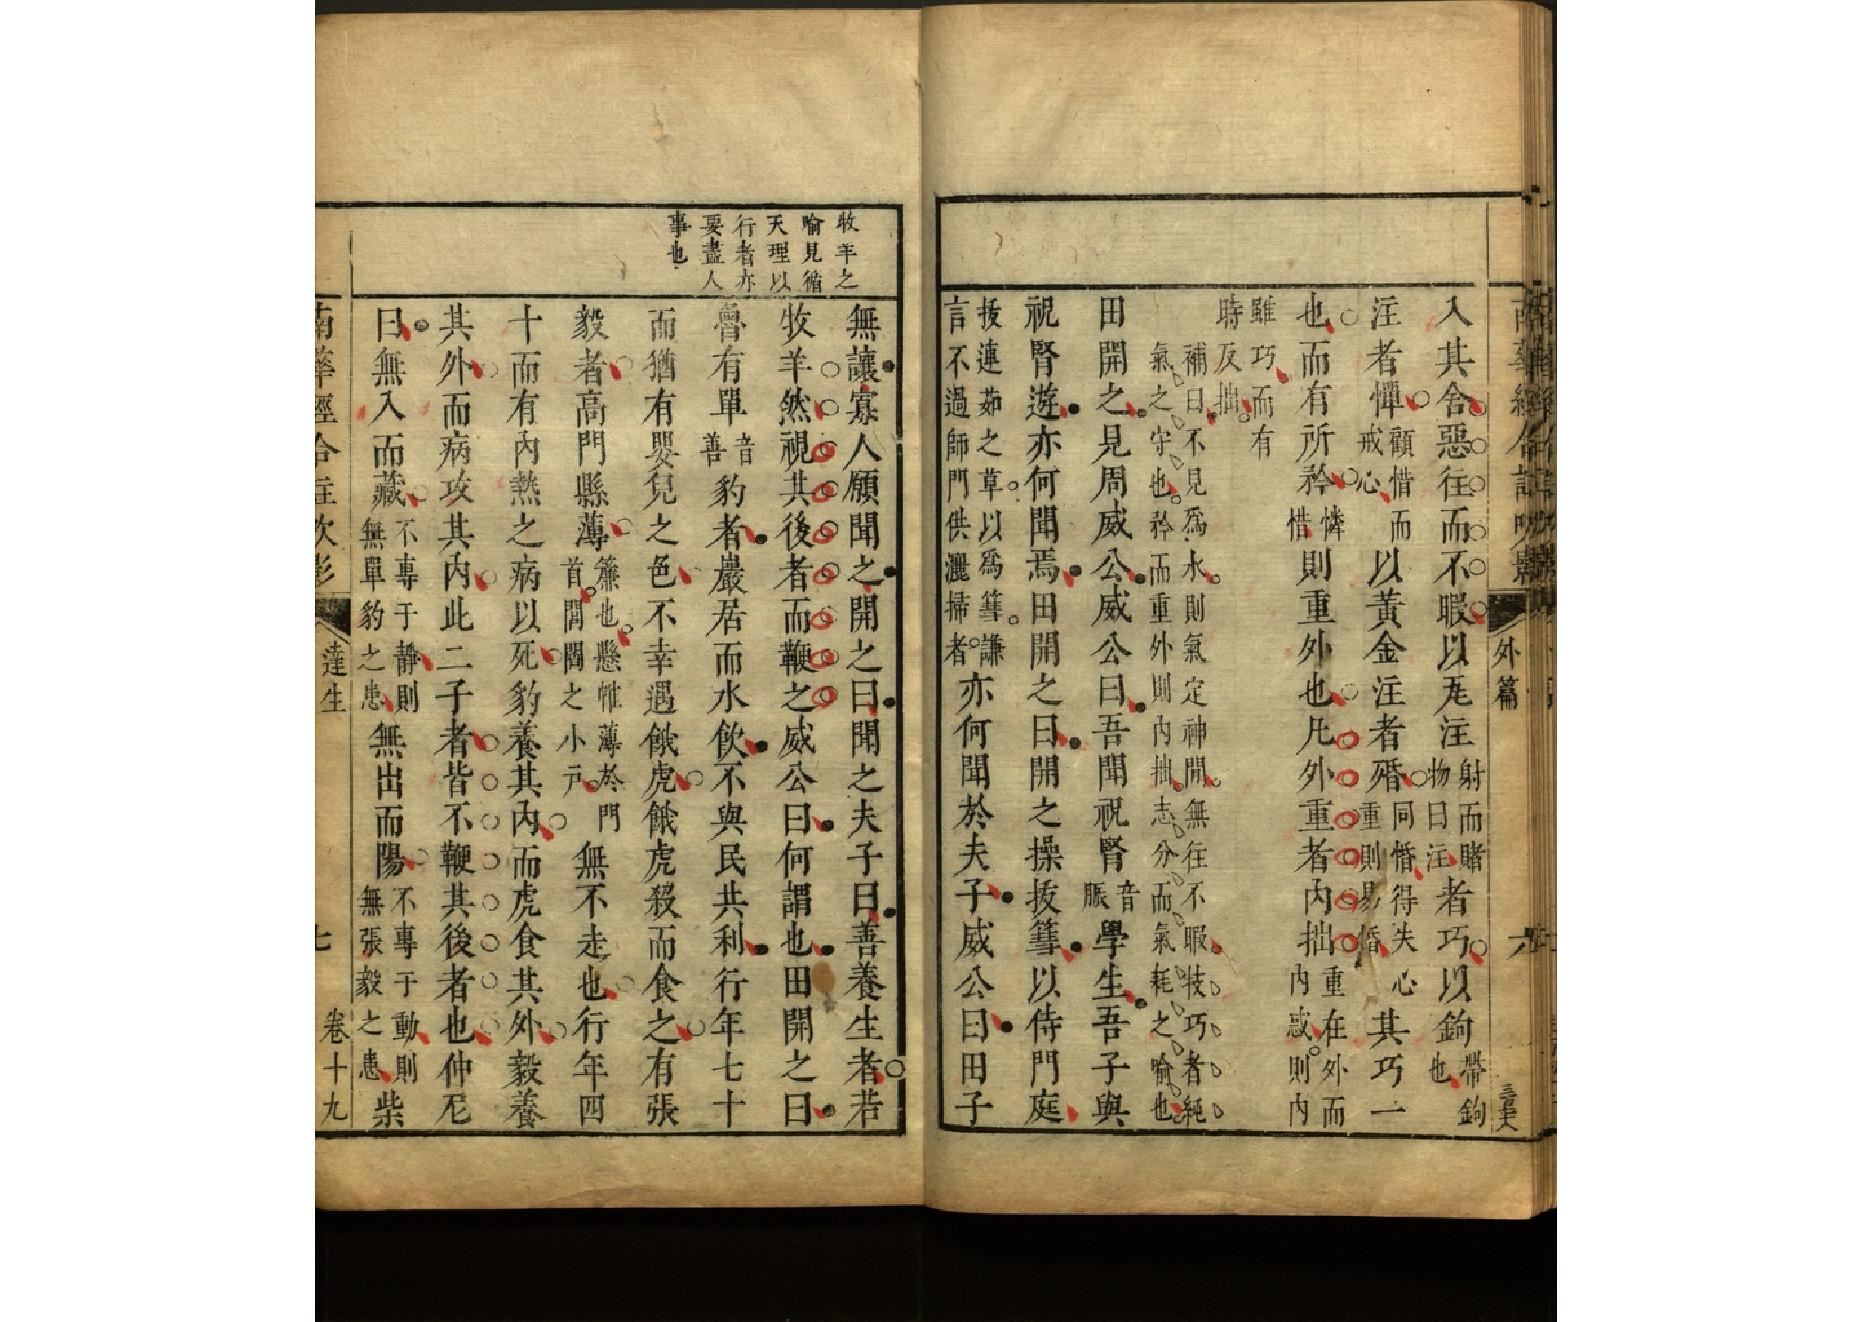 外篇
入其舍惡往而不暇以瓦注射而賭物曰注者巧以鉤帶鉤也
注者憚顧惜而戒心以黃金注者殙同惛得失心重則易惛其巧一
也而有所矜憐惜則重外也凡外重者內拙重在外而內惑則內
雖巧而有時反拙
補曰不見為水則氣定神閒無往不暇技巧者純氣之守也矜而重外則內拙志分而氣耗之喻也
田開之見周威公威公曰吾聞祝腎音脤學生吾子與
祝腎遊亦何聞焉田開之曰開之操拔篲以侍門庭
拔連茹之草以為篲謙言不過師門供灑掃者亦何聞於夫子威公曰田子
牧羊之
喻見循
天理以
行者亦
要盡人
事也
無讓寡人願聞之開之曰聞之夫子曰善養生者若
牧羊然視其後者而鞭之威公曰何謂也田開之曰
魯有單音善豹者巖居而水飲不與民共利行年七十
而猶有嬰兒之色不幸遇餓虎餓虎殺而食之有張
毅者高門縣薄簾也懸帷薄於門首閭閻之小戶無不走也行年四
十而有內熱之病以死豹養其內而虎食其外毅養
其外而病攻其內此二子者皆不鞭其後者也仲尼
曰無入而藏不專于靜則無單豹之患無出而陽不專于動則無張毅之患柴
達生
七
卷十九